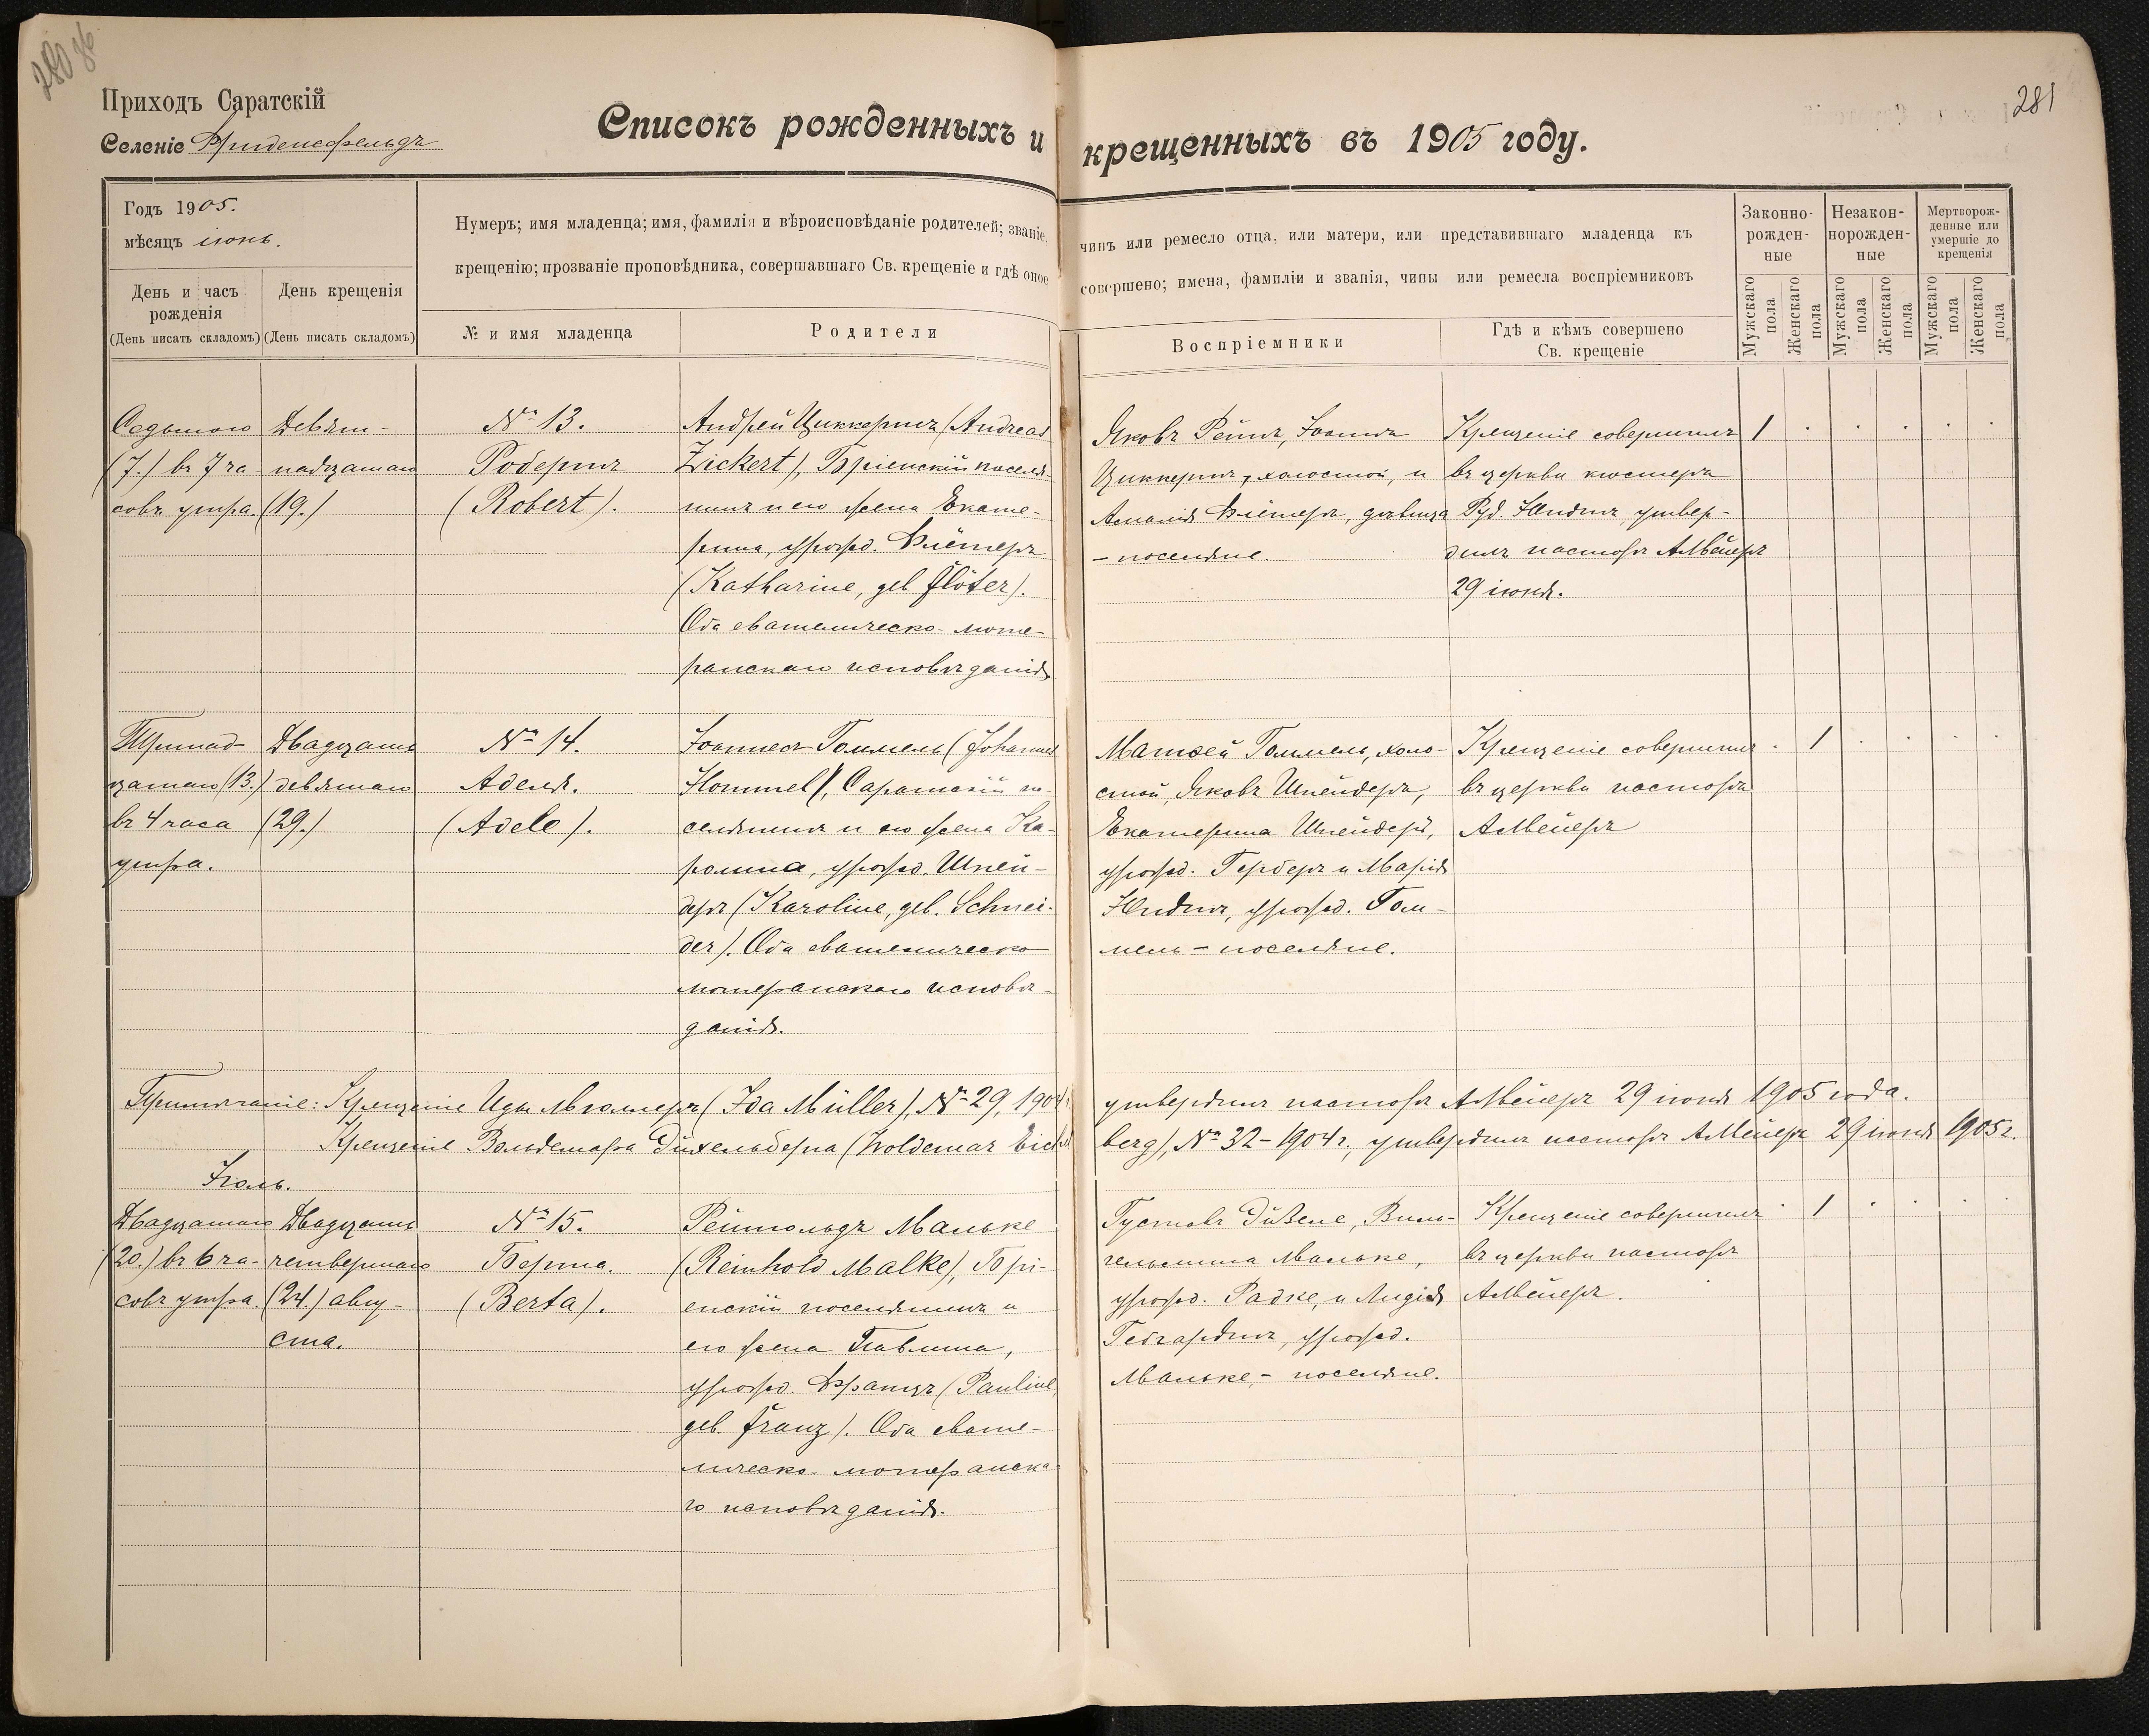 280 об.
281
Приходъ Саратскій
Селеніе Фриденсфельдъ
Списокъ рожденныхъ и крещенныхъ въ 1905 году.
Годъ 1905.
мѣсяцъ іюнь.
День и часъ рожденія
(День писать складомъ)
День крещенія
(День писать складомъ)
Нумеръ; имя младенца; имя, фамилія и вѣроисповѣданіе родителей; званіе, чинъ или ремесло отца, или матери, или представившаго младенца къ
крещенію; прозваніе проповѣдника, совершавшаго Св. крещеніе и гдѣ оное совершено; имена, фамиліи и званія, чины или ремесла воспріемниковъ
№ и имя младенца
Родители
Воспріемники
Гдѣ и кѣмъ совершено
Св. крещеніе
Законно-
рожден-
ные
Незакон-
норожден-
ные
Мертворож-
денные или
умершіе до
крещенія
Мужскаго пола
Женскаго пола
Мужскаго пола
Женскаго пола
Мужскаго пола
Женскаго пола
Седьмого
(7.) въ 7 ча-
совъ утра.
Девят-
надцатаго
(19.)
№ 13.
Робертъ
(Robert).
Андрей Циккертъ (Andreas
Zickert), Бріенскій поселя-
нинъ и его жена Екате-
рина, урожд. Флётеръ
(Katharine, geb. Flöter).
Оба евангелическо-люте-
ранскаго исповѣданія
Яковъ Рейнъ, Іоаннъ
Циккертъ, холостой, и
Амалія Флётеръ, дѣвица
- поселяне.
Крещеніе совершилъ
въ церкви кюстеръ
Руд. Юндтъ, утвер-
дилъ пасторъ А. Мейеръ
29 іюня.
1
Тринад-
цатаго (13.)
въ 4 часа
утра.
Двадцать
девятаго
(29.)
№ 14.
Аделя.
(Adele).
Іоаннесъ Гоммель (Johannes
Hommel), Саратскій по-
селянинъ и его жена Ка-
ролина, урожд. Шней-
деръ (Karoline, geb. Schnei-
der). Оба евангелическо
лютеранскаго исповѣ-
данія.
Матвей Гоммель, холо-
стой, Яковъ Шнейдеръ,
Екатерина Шнейдеръ,
урожд. Герберъ и Марія
Юндтъ, урожд. Гом-
мель - поселяне.
Крещеніе совершилъ
въ церкви пасторъ
А. Мейеръ
1
Примѣчаніе: Крещеніе Иды Мюллеръ (Ida Müller), № 29, 1904 г. утвердилъ пасторъ А. Мейеръ 29 іюня 1905 года.
Крещеніе Вольдемара Эйхельберга (Woldemar Eichelberg), № 32 - 1904 г., утвердилъ пасторъ А. Мейеръ 29 іюня 1905 г.
Іюль.
Двадцатаго
(20.) въ 6 ча-
совъ утра.
Двадцать
четвертаго
(24.) авгу-
ста.
№ 15.
Берта.
(Berta).
Рейнгольдъ Мальке
(Reinhold Malke), Брі-
енскій поселянинъ и
его жена Павлина,
урожд. Францъ (Pauline,
geb. Franz). Оба еванге-
лическо-лютеранска-
го исповѣданія.
Густавъ Дивене, Виль-
гельмина Мальке,
урожд. Радке, и Лидія
Гебгардтъ, урожд.
Мальке, - поселяне.
Крещеніе совершилъ
въ церкви пасторъ
А. Мейеръ.
1